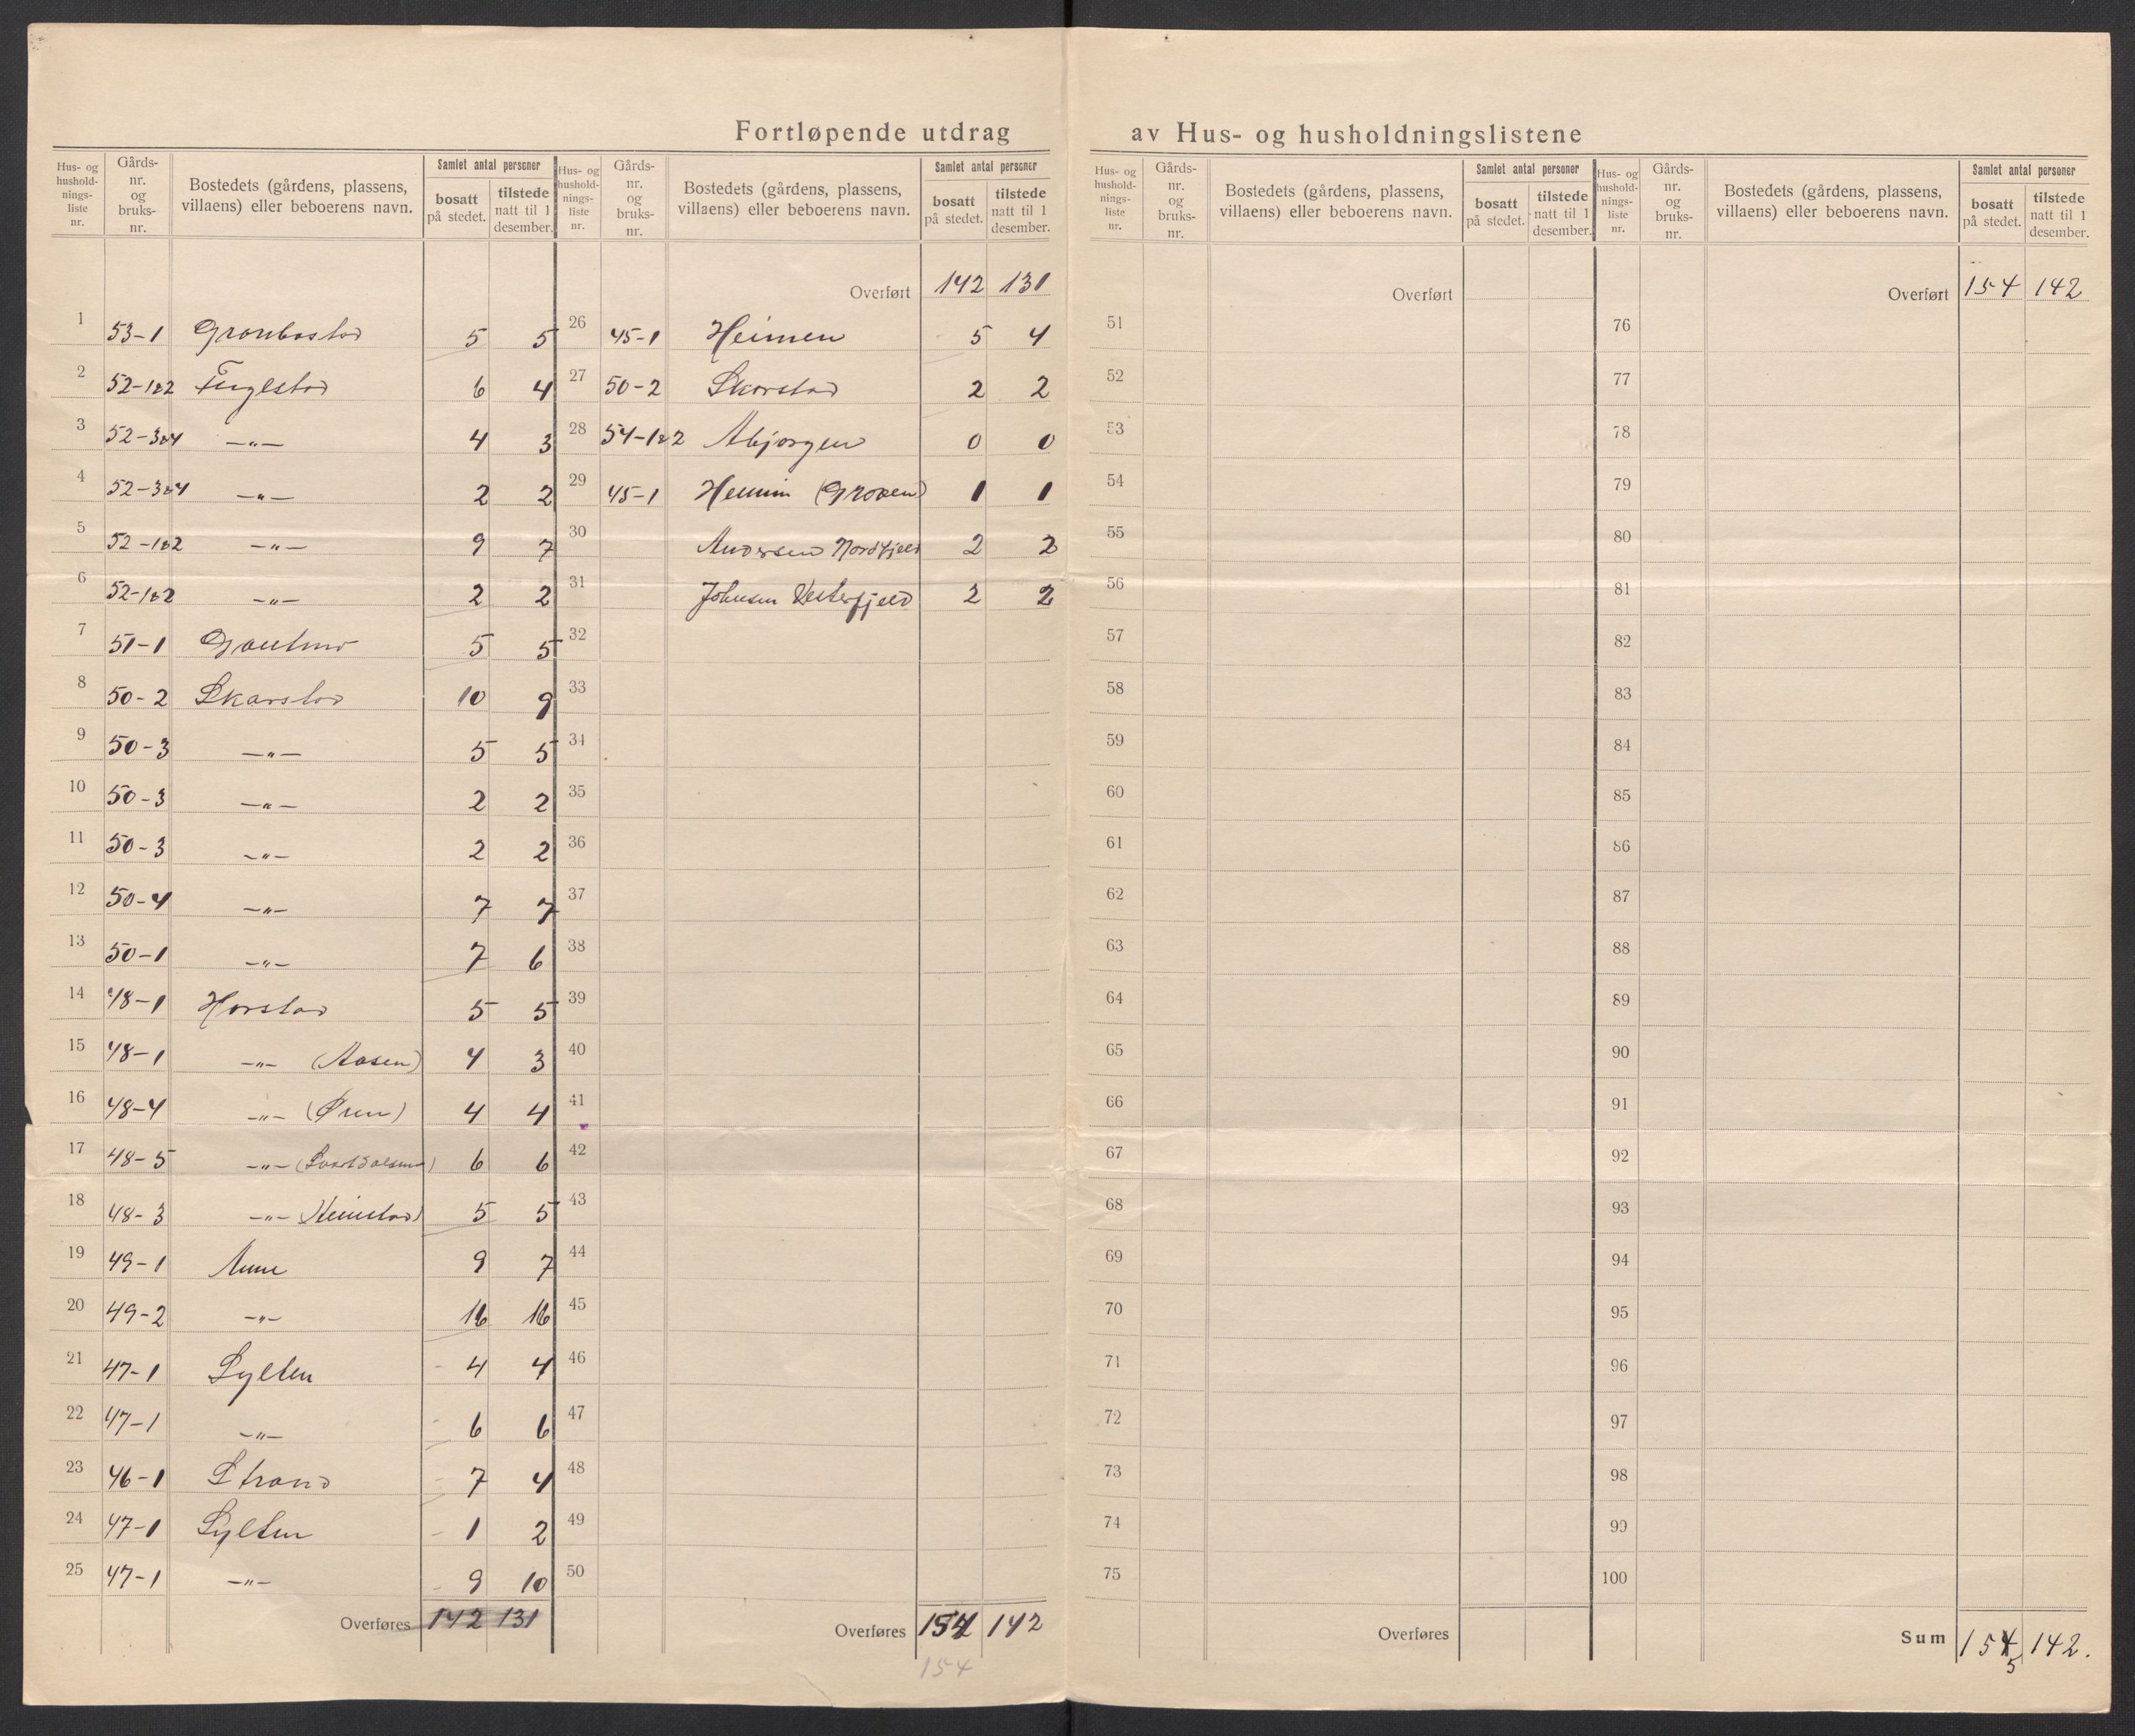 Fortløpende utdrag av Hus- og husholdningslistene
Hus- og hushold-nings-liste nr. Gårds-nr. og bruks-nr. Bostedets (gårdens, plassens, villaens) eller beboerens navn. Samlet antal personer bosatt på stedet. tilstede natt til 1 desember.
1 53-1 Gronbostad 5 5
2 52-1&2 Fuglstad 6 4
3 52-3&4 -"- 4 3
4 52-3&4 -"- 2 2
5 52-1&2 -"- 9 7
6 52-1&2 -"- 2 2
7 51-1 5 5
8 50-2 Skarstad 10 9
9 50-3 -"- 5 5
10 50-3 -"- 2 2
11 50-3 -"- 2 2
12 50-4 -"- 7 7
13 50-1 -"- 7 6
14 48-1 Horstad 5 5
15 48-1 -"- (Aasen) 4 3
16 48-4 -"- (Øren) 4 4
17 48-5 -"- 6 6
18 48-3 -"- (Heimstad) 5 5
19 49-1 Aune 9 7
20 49-2 -"- 16 16
21 47-1 Sylten 4 4
22 47-1 -"- 6 6
23 46-1 Strand 7 4
24 47-1 Sylten 1 2
25 47-1 -"- 9 10
Overføres 142 131
Hus- og hushold-nings-liste nr. Gårds-nr. og bruks-nr. Bostedets (gårdens, plassens, villaens) eller beboerens navn. Samlet antal personer bosatt på stedet. tilstede natt til 1 desember.
Overført 142 131
26 45-1 Heimen 5 4
27 50-2 Skarstad 2 2
28 54-1&2 Abjorgen 0 0
29 45-1 (Groven) 1 1
30 Andersen Nordfjeld 2 2
31 Johnsen Vesterfjeld 2 2
32
33
34
35
36
37
38
39
40
41
42
43
44
45
46
47
48
49
50
Overføres 154 142
154
Hus- og hushold-nings-liste nr. Gårds-nr. og bruks-nr. Bostedets (gårdens, plassens, villaens) eller beboerens navn. Samlet antal personer bosatt på stedet. tilstede natt til 1 desember.
Overført
51
52
53
54
55
56
57
58
59
60
61
62
63
64
65
66
67
68
69
70
71
72
73
74
75
Overføres
Hus- og hushold-nings-liste nr. Gårds-nr. og bruks-nr. Bostedets (gårdens, plassens, villaens) eller beboerens navn. Samlet antal personer bosatt på stedet. tilstede natt til 1 desember.
Overført 154 142
76
77
78
79
80
81
82
83
84
85
86
87
88
89
90
91
92
93
94
95
96
97
98
99
100
Sum 154 142.
5